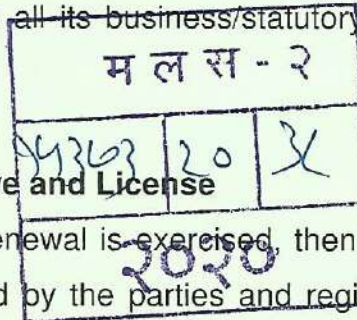 all its business/statutory
म ल स - २
20
ve and License
enewal is exercised, then
२०२०
d by the parties and regi